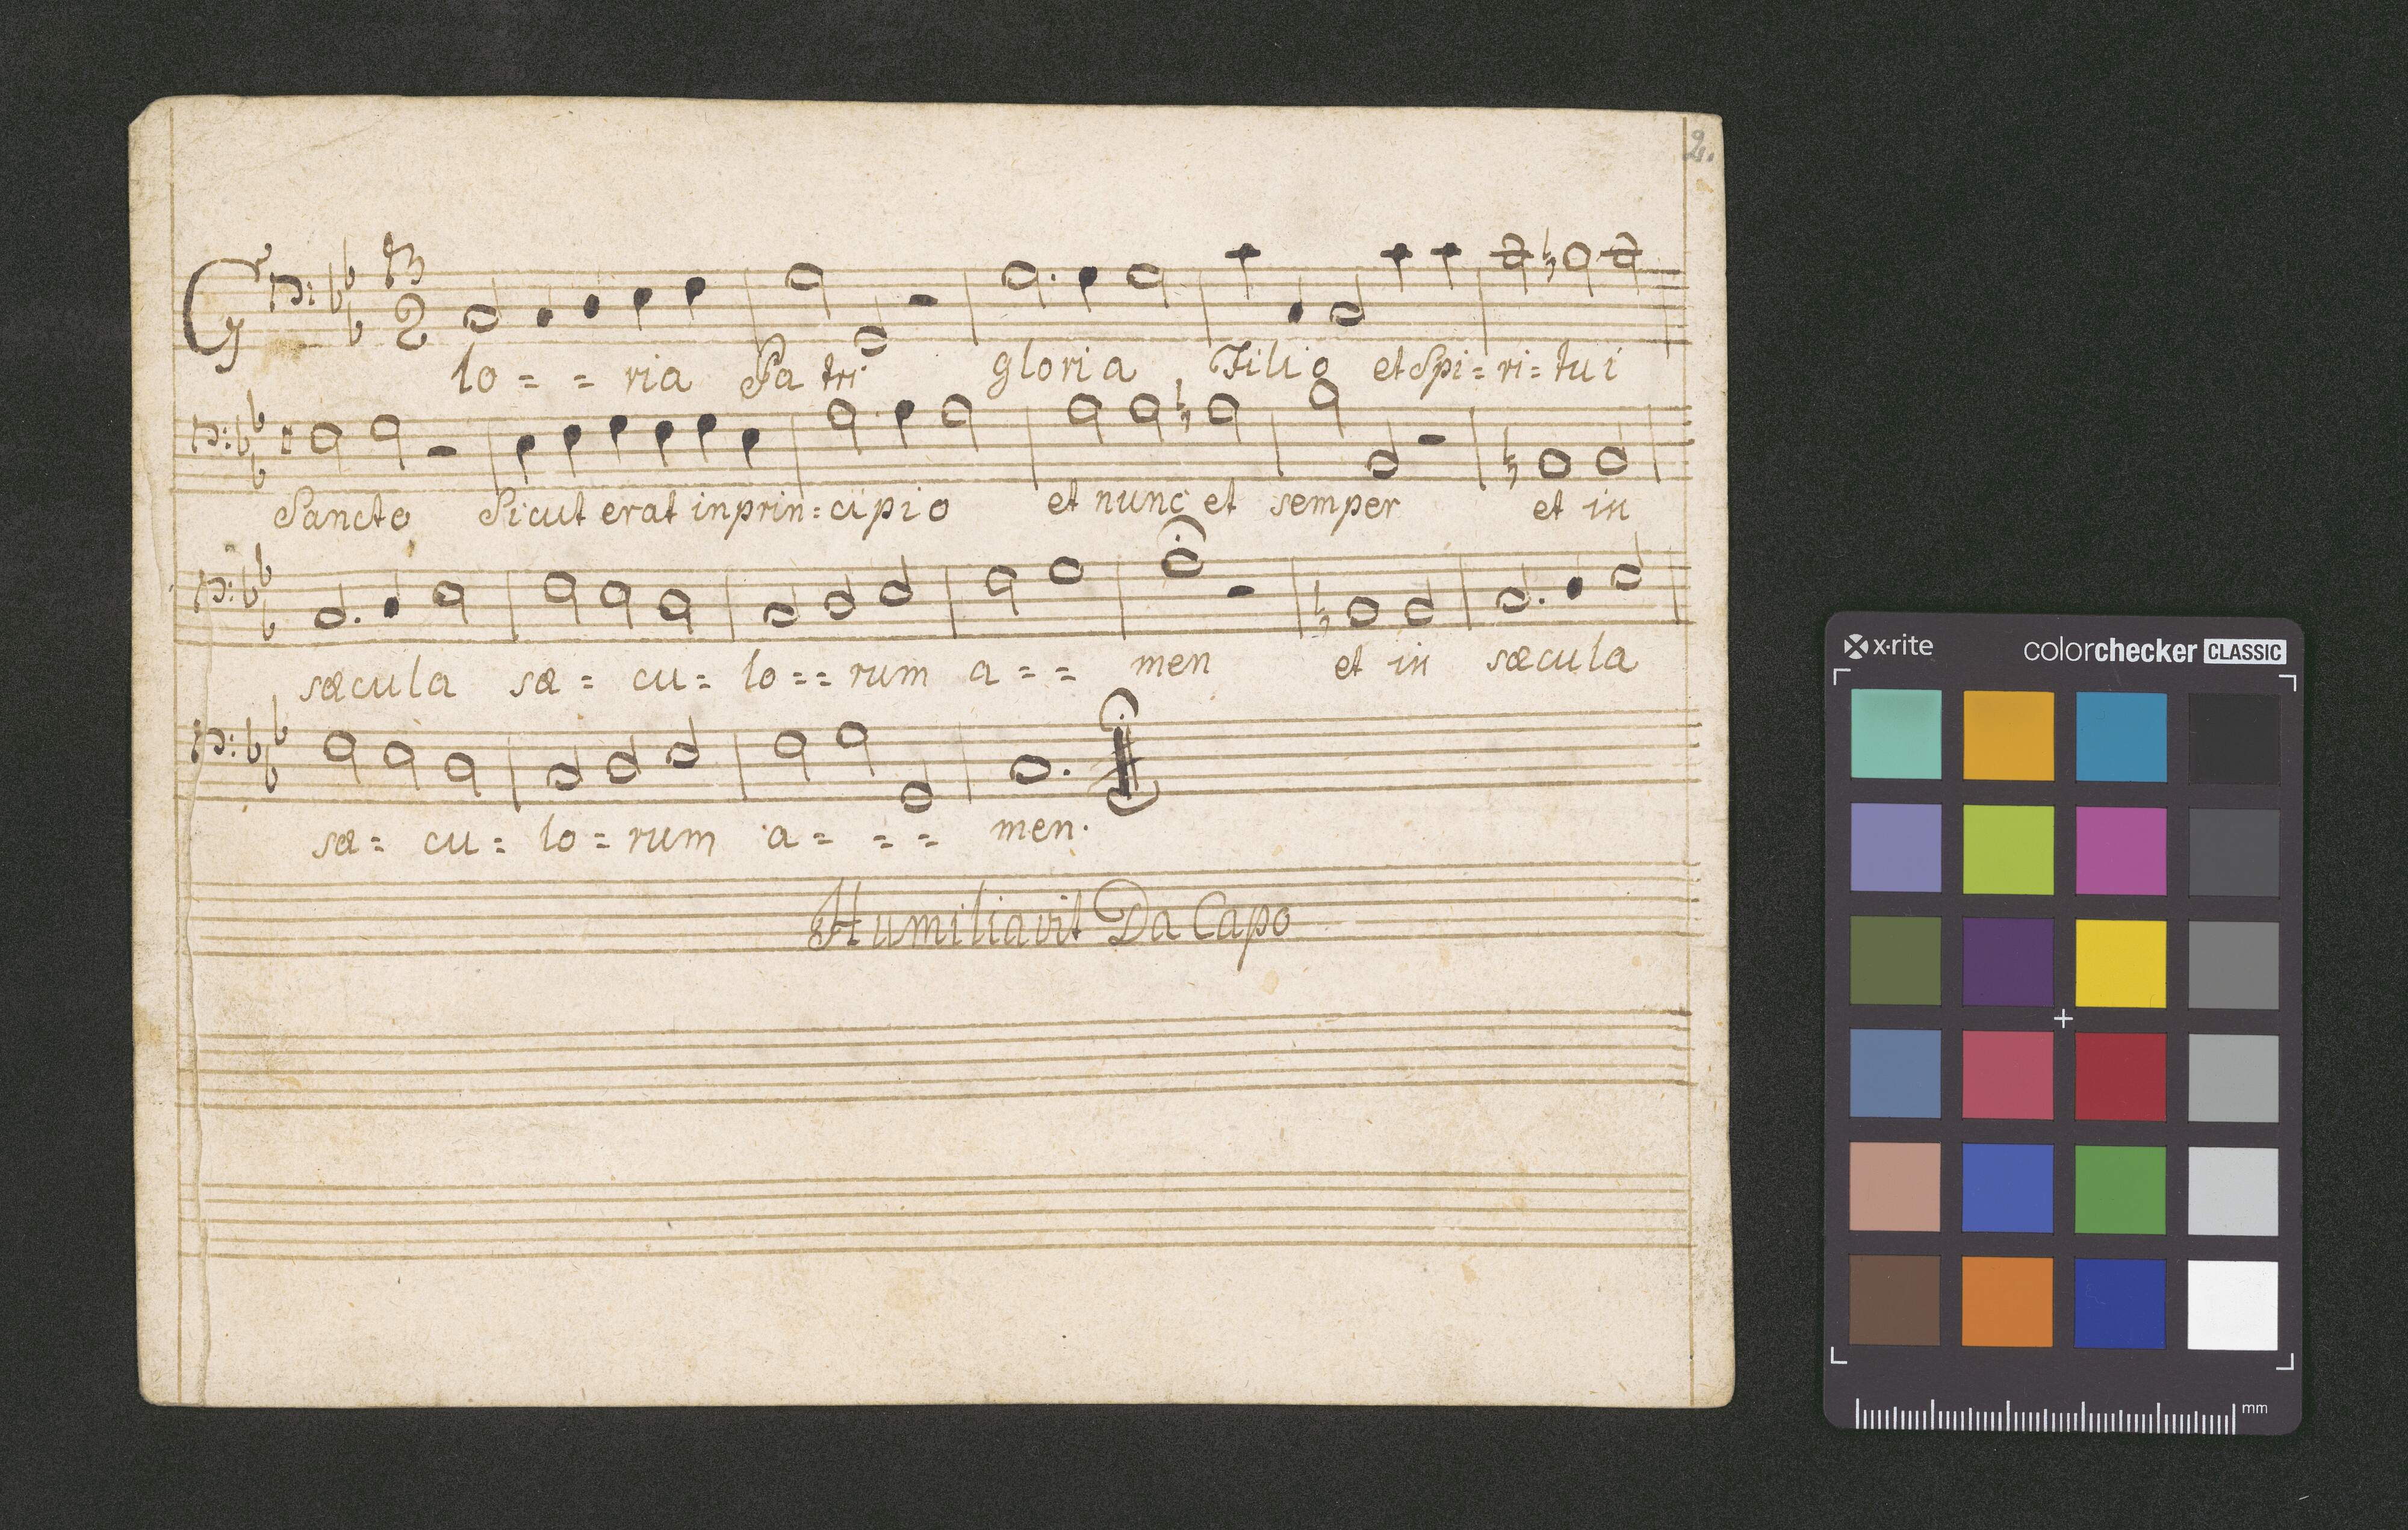 2.
3
2
Glo = = ria Patri gloria Filio et Spi = ri = tu i
Sancto Sicut erat in prin = cipio et nunc et semper et in
sæcula sæ = cu = lo = = rum a = = men et in sæcula
sæ = cu = lo = rum a = = = men.
Humiliavit Da Capo
x·rite colorchecker CLASSIC
mm